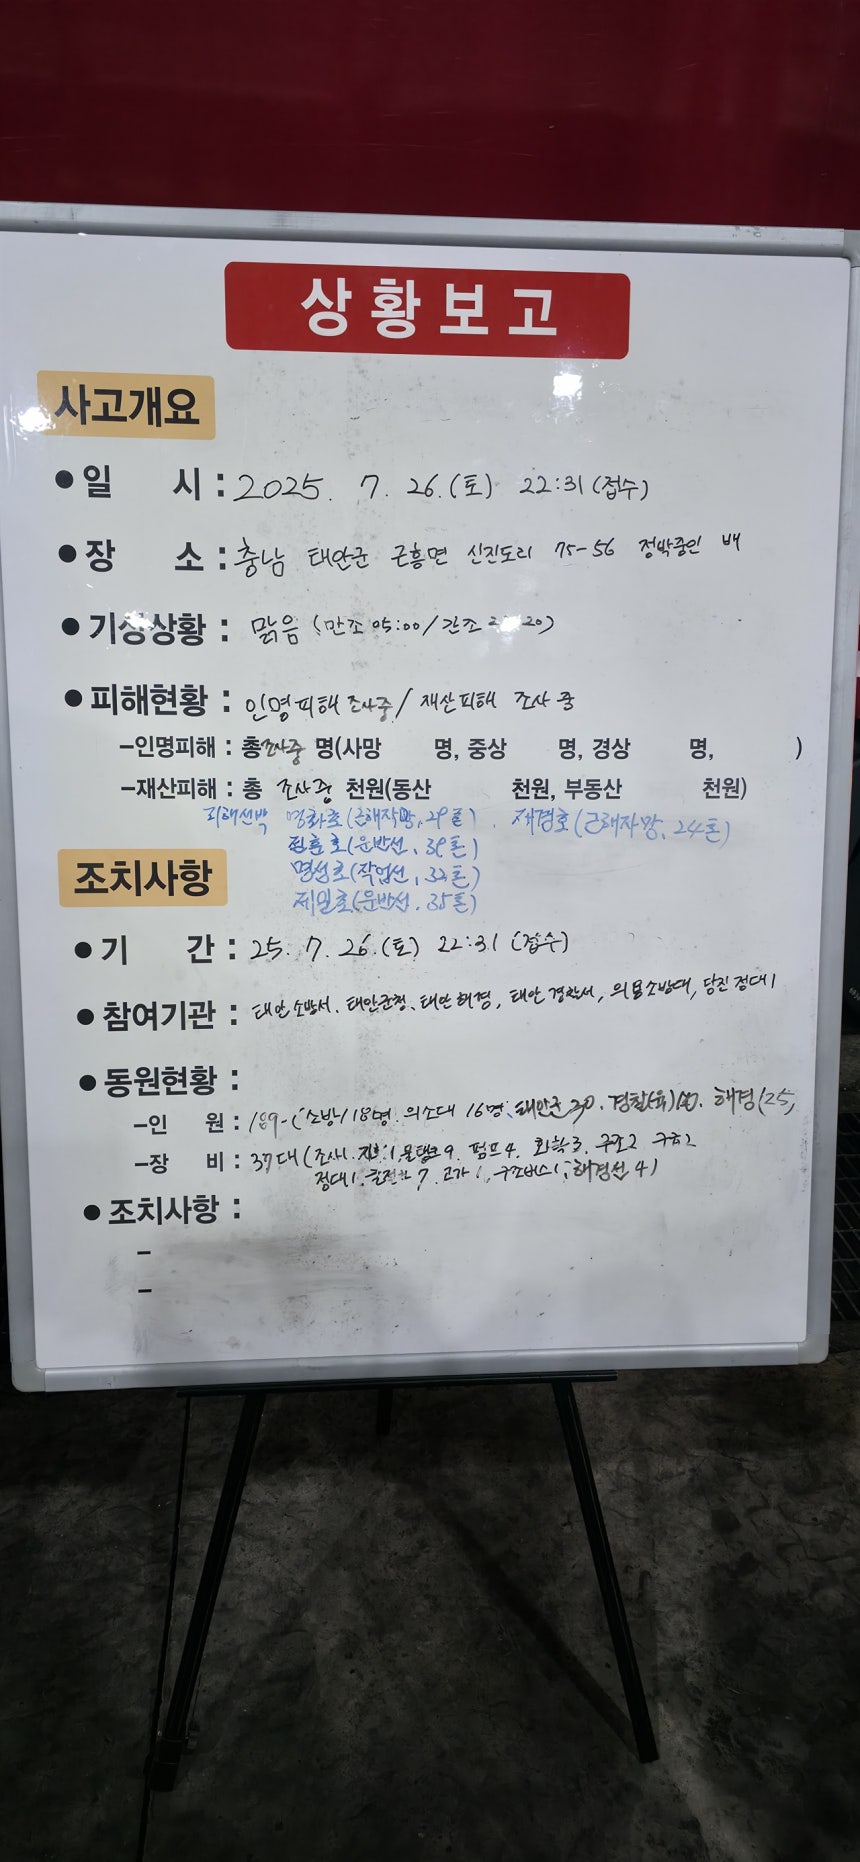 상황보고
사고개요
● 일 시 : 2025. 7. 26.(토) 22:31 (접수)
● 장 소 : 충남 태안군 근흥면 신진도리 75-56 정박중인 배
● 기상상황 : 맑음 (만조 05:00/간조 20)
● 피해현황 : 인명피해 조사중/ 재산피해 조사중
-인명피해 : 총조사중 명(사망 명, 중상 명, 경상 명, )
-재산피해 : 총 조사중 천원(동산 천원, 부동산 천원)
피해선박 명화호(근해자망, 29톤). 재경호(근해자망, 24톤)
호(운반선, 39톤)
명성호(작업선, 32톤)
제일호(운반선, 35톤)
조치사항
● 기 간 : 25. 7. 26.(토) 22:31 (접수)
● 참여기관 : 태안소방서. 태안군청. 태안해경, 태안경찰서, 의용소방대, 당진정대1
● 동원현황 :
-인 원 : 189-(소방118명. 의소대 16명. 태안군 20. 해경(25,
-장 비 : 37대(조사1. 물탱크9. 펌프4. 화학3. 구조2 구급2
정대1. 7. 고가1. 구조버스1. 해경선 4)
● 조치사항 :
-
-